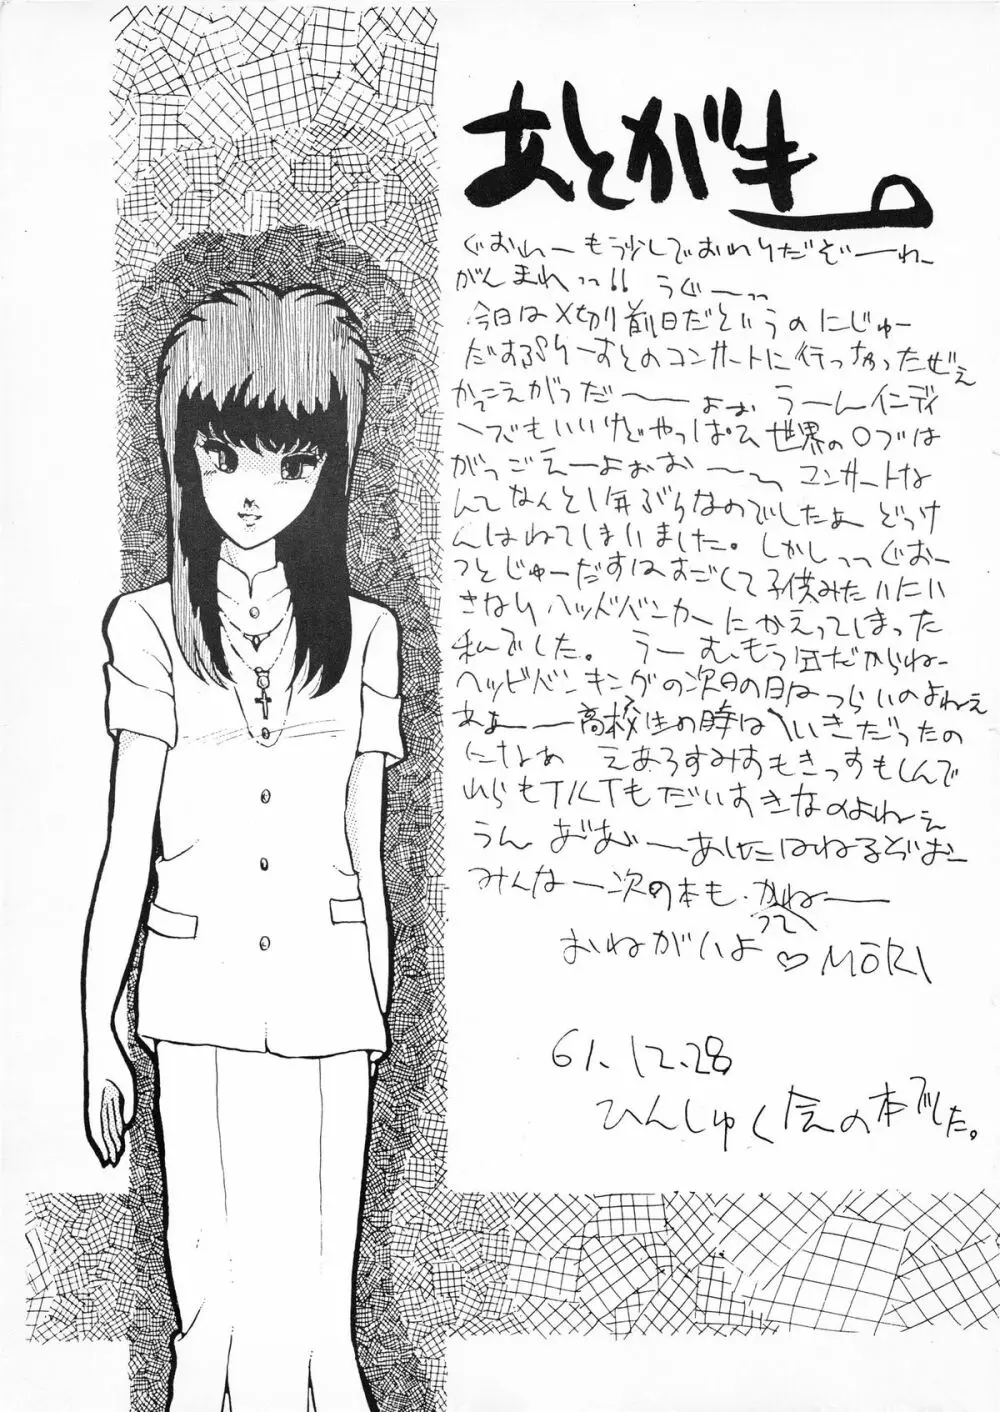 あとがき。
ぐおれーもう少しでおわりだぞーわー
がんまれっっ!! うぐーっっ
今日は〆切り前日だというのにじゅー
だすぷりーすとのコンサートに行っちゃったぜぇ
かっこえがっだ――よぉぉ うーんインディ
ーズでもいいけどやっぱ 世界の〇ブは
がっごえーよぉぉお――〜 コンサートな
んてなんと1年ぶりなのでしたよ どっけ
んはねてしまいました。しかしっっぐおー
っとじゅーだすはすごくて子供みたいにい
きなりヘッドバンガーにかえってしまった
私でした。 うー む、もう 
ヘッドバンキングの次の日の日はつらいのよねぇ
あぁ――高校生の時はへいきだったの
になぁ えあろすみすもきっすもしんで
れらもTKTもだいすきなのよねぇ
うん おおお――あしたはねるぞぉー
みんな―次の本も、かってねー
おねがいよ♡MORI
61.12.28
ひんしゅく会の本でした。